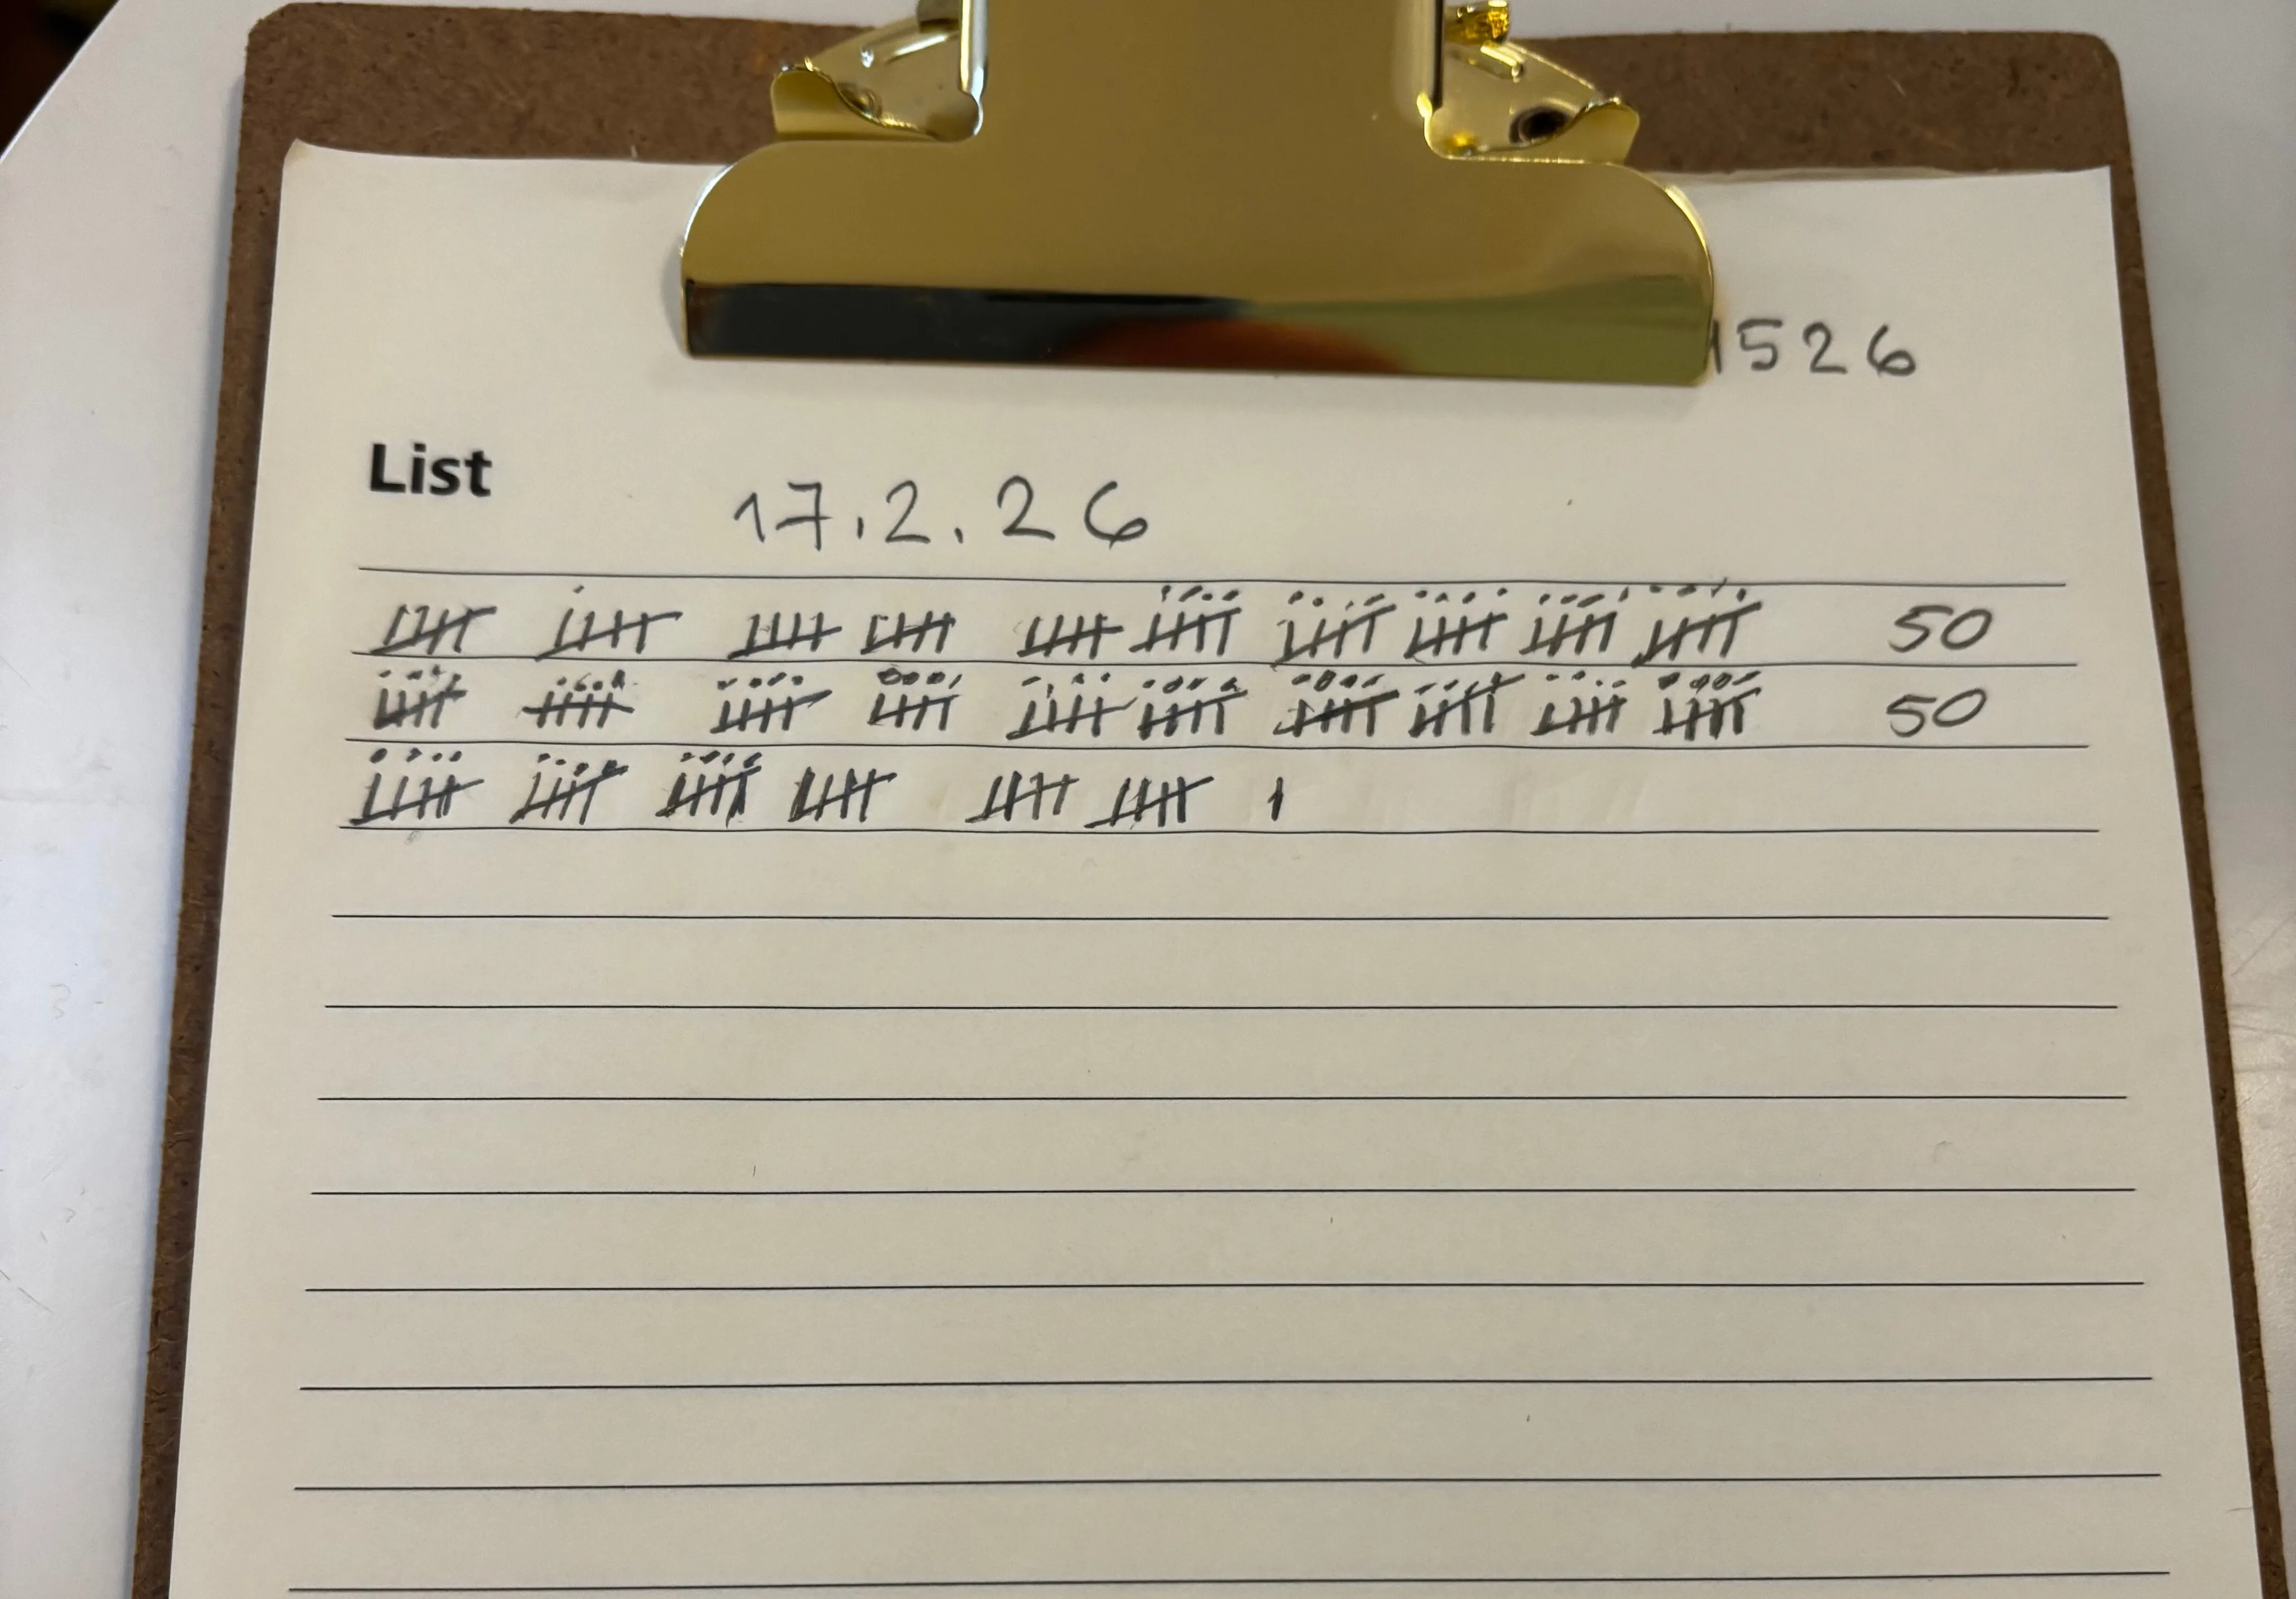 1526
List 17.2.26
50
50